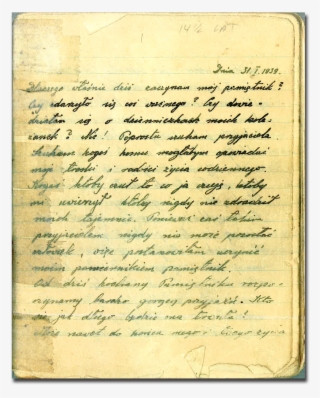 Dnia 31.I.1939.
Dlaczego właśnie dziś zaczynam mój pamiętnik?
Czy zdarzyło się coś ważnego? Czy dowie-
działam się o dzienniczkach moich kole-
żanek? Nie! Poprostu szukam przyjaciela
Szukam kogoś komu mogłabym opowiadać
moje troski i radości życia codziennego.
Kogoś ktoby czuł to co ja czuję, ktoby
mi uwierzył ktoby nigdy nie zdradził
moich tajemnic. Ponieważ takim
przyjacielem nigdy nie może pozostać
człowiek, więc postanowiłam uczynić
moim powiernikiem pamiętnik.
Od dziś kochany Pamiętniku rozpo-
czynamy bardzo gorącą przyjaźń. Kto
wie jak długo będzie ona trwała!
Może nawet do końca mego życia